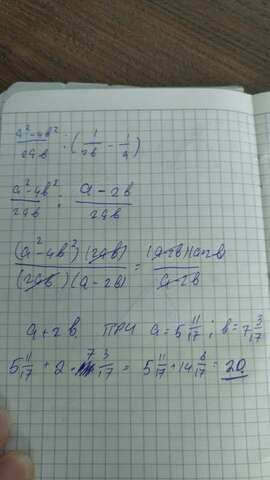 (a²-4b²)/(2ab) : (1/(2b) - 1/a)
(a²-4b²)/(2ab) : (a-2b)/(2ab)
((a²-4b²)(2ab))/((2ab)(a-2b)) = ((a-2b)(a+2b))/(a-2b)
a+2b ПРИ a=5 11/17; b=7 3/17
5 11/17 + 2 · 7 3/17 = 5 11/17 + 14 6/17 = 20